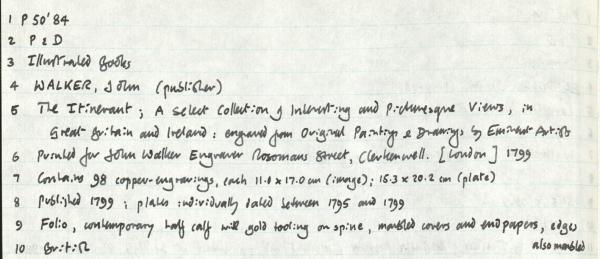 1 P 50'84
2 P & D
3 Illustrated Books
4 WALKER, John (publisher)
5 The Itinerant; A Select Collection of Interesting and Picturesque Views, in
Great Britain and Ireland: engraved from Original Paintings & Drawings by Eminent Artists
6 Printed for John Walker Engraver Rosomans Street, Clerkenwell. [London] 1799
7 Contains 98 copper-engravings, each 11.0 x 17.0 cm (image); 15.3 x 20.2 cm (plate)
8 Published 1799; plates individually dated between 1795 and 1799
9 Folio, contemporary half calf with gold tooling on spine, marbled covers and endpapers, edges
also marbled
10 British